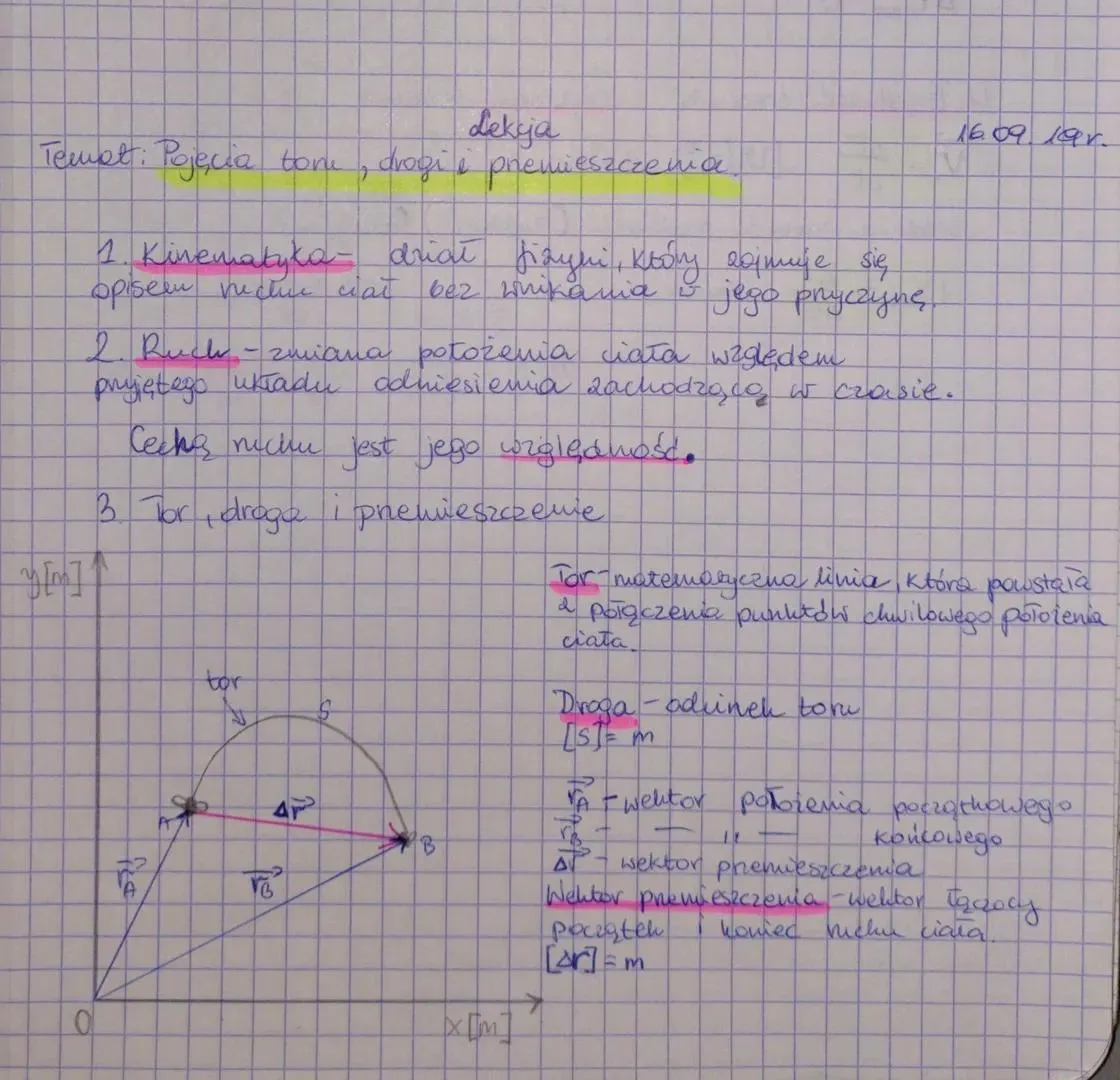 Lekcja
16.09.19r.
Temat: Pojęcia toru, drogi i przemieszczenia.
1. Kinematyka - dział fizyki, który zajmuje się
opisem ruchu ciał bez wnikania w jego przyczynę.
2. Ruch - zmiana położenia ciała względem
przyjętego układu odniesienia zachodzącą w czasie.
Cechą ruchu jest jego względność.
3. Tor, droga i przemieszczenie
y[m]
tor
S
A
Δr⃗
B
r⃗A
r⃗B
0
x[m]
Tor - matematyczna linia, która powstała
z połączenia punktów chwilowego położenia
ciała.
Droga - odcinek toru
[S] = m
r⃗A - wektor położenia początkowego
r⃗B - — „ — końcowego
Δr⃗ - wektor przemieszczenia
Wektor przemieszczenia - wektor łączący
początek i koniec ruchu ciała.
[Δr] = m